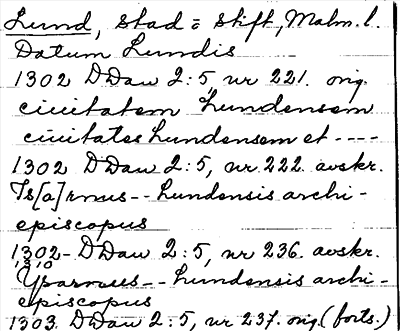 Lund, stad = stift, Malm. l.
Datum Lundis
1302 DDan 2:5, nr 221. orig.
ciuitatem Lundensem
ciuitates Lundensem et ----
1302 DDan 2:5, nr 222. avskr.
Is[a]rnus -- Lundensis archi-
episcopus
1302-1310 DDan 2:5, nr 236. avskr.
Yparnus -- Lundensis archi-
episcopus
1303. DDan 2:5, nr 237. orig. (forts.)